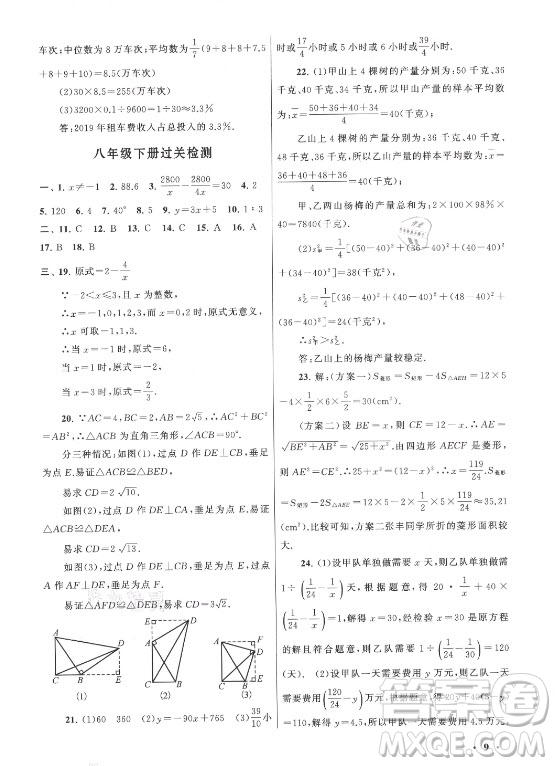 车次;中位数为 8 万车次;平均数为 1/7(9+8+8+7.5
+8+9+10)=8.5(万车次)
(2)30×8.5=255(万车次)
(3)3200×0.1÷9600=1÷30≈3.3%
答:2019年租车费收入占总投入的 3.3%.
八年级下册过关检测
一、1. x≠-1 2. 88.6 3. 2800/x - 2800/4x=30 4. 2
5. 120 6. 4 7. 40° 8. < 9. y=3x+5 10. >
二、11. C 12. C 13. C 14. D 15. A 16. A
17. B 18. B
三、19. 原式=2-4/x
∵-2<x≤3,且 x 为整数,
∴x=-1,0,2 时,原式无意义,
∴x 可取-1,1,3.
∴当 x=1 时,原式=-2
当 x=3 时,原式=2/3
20. ∵AC=4,BC=2,AB=2√5,∴AC²+BC²
=AB²,∴△ACB 为直角三角形,∠ACB=90°.
分三种情况:如图(1),过点 D 作 DE⊥CB,垂足为
点 E.易证△ACB≌△BED,
易求 CD=2√10.
如图(2),过点 D 作 DE⊥CA,垂足为点 E.易证
△ACB≌△DEA,
易求 CD=2√13.
如图(3),过点 D 作 DE⊥CB,垂足为点 E,过点
A 作 AF⊥DE,垂足为点 F.
易证△AFD≌△DEB,易求 CD=3√2.
A D C B E
(1)
E D A C B
(2)
A F D C B E
(3)
21. (1)60 360 (2)y=-90x+765 (3)39/10 小
时或 17/4 小时或 5 小时或 39/4 小时.
22. (1)甲山上 4 棵树的产量分别为:50 千克、36
千克、40 千克、34 千克,所以甲山产量的样本平均数
为:x=(50+36+40+34)/4=40(千克);
乙山上 4 棵树的产量分别为:36 千克、40 千克、
48 千克、36 千克,所以乙山产量的样本平均数为 x=
(36+40+48+36)/4=40(千克).
甲、乙两山杨梅的产量总和为:2×100×98%
×40=7840(千克).
(2)s²甲=1/4[(50-40)²+(36-40)²+(40-40)²
+(34-40)²]=38(千克²),
s²乙=1/4[(36-40)²+(40-40)²+(48-40)²+
(36-40)²]=24(千克²)
∴s²甲>s²乙.
答:乙山上的杨梅产量较稳定.
23. 解:(方案一)S菱形=S矩形-4S△AEH=12×5-
4×1/2×6×5/2=30(cm²).
(方案二)设 BE=x,则 CE=12-x,∴AE=
√(BE²+AB²)=√(25+x²).由四边形 AECF 是菱形,
则 AE²=CE²,∴25+x²=(12-x)²,∴x=119/24.∴S菱形
=S矩形-2S△ABE=12×5-2×1/2×5×119/24≈35.21
(cm²).经比较可知,方案二张丰同学所折的菱形面积较
大.
24. (1)设甲队单独做需要 x 天,则乙队单独做需
1÷(1/24-1/x)天.根据题意,得 20·1/x+(40+20)·
(1/24-1/x)=1.解得 x=30,经检验 x=30 是原方程
的解且符合题意,则乙队需要 1÷(1/24-1/x)=120(天).
(2)设甲队一天需费用 y 万元,则乙队一天需费
用(120/24-y)万元,根据题意,得 20y+(40+20)·
(120/24-y)=120,解得 y=4.5.所以甲队一天需费用 4.5 万元,
· 9 ·